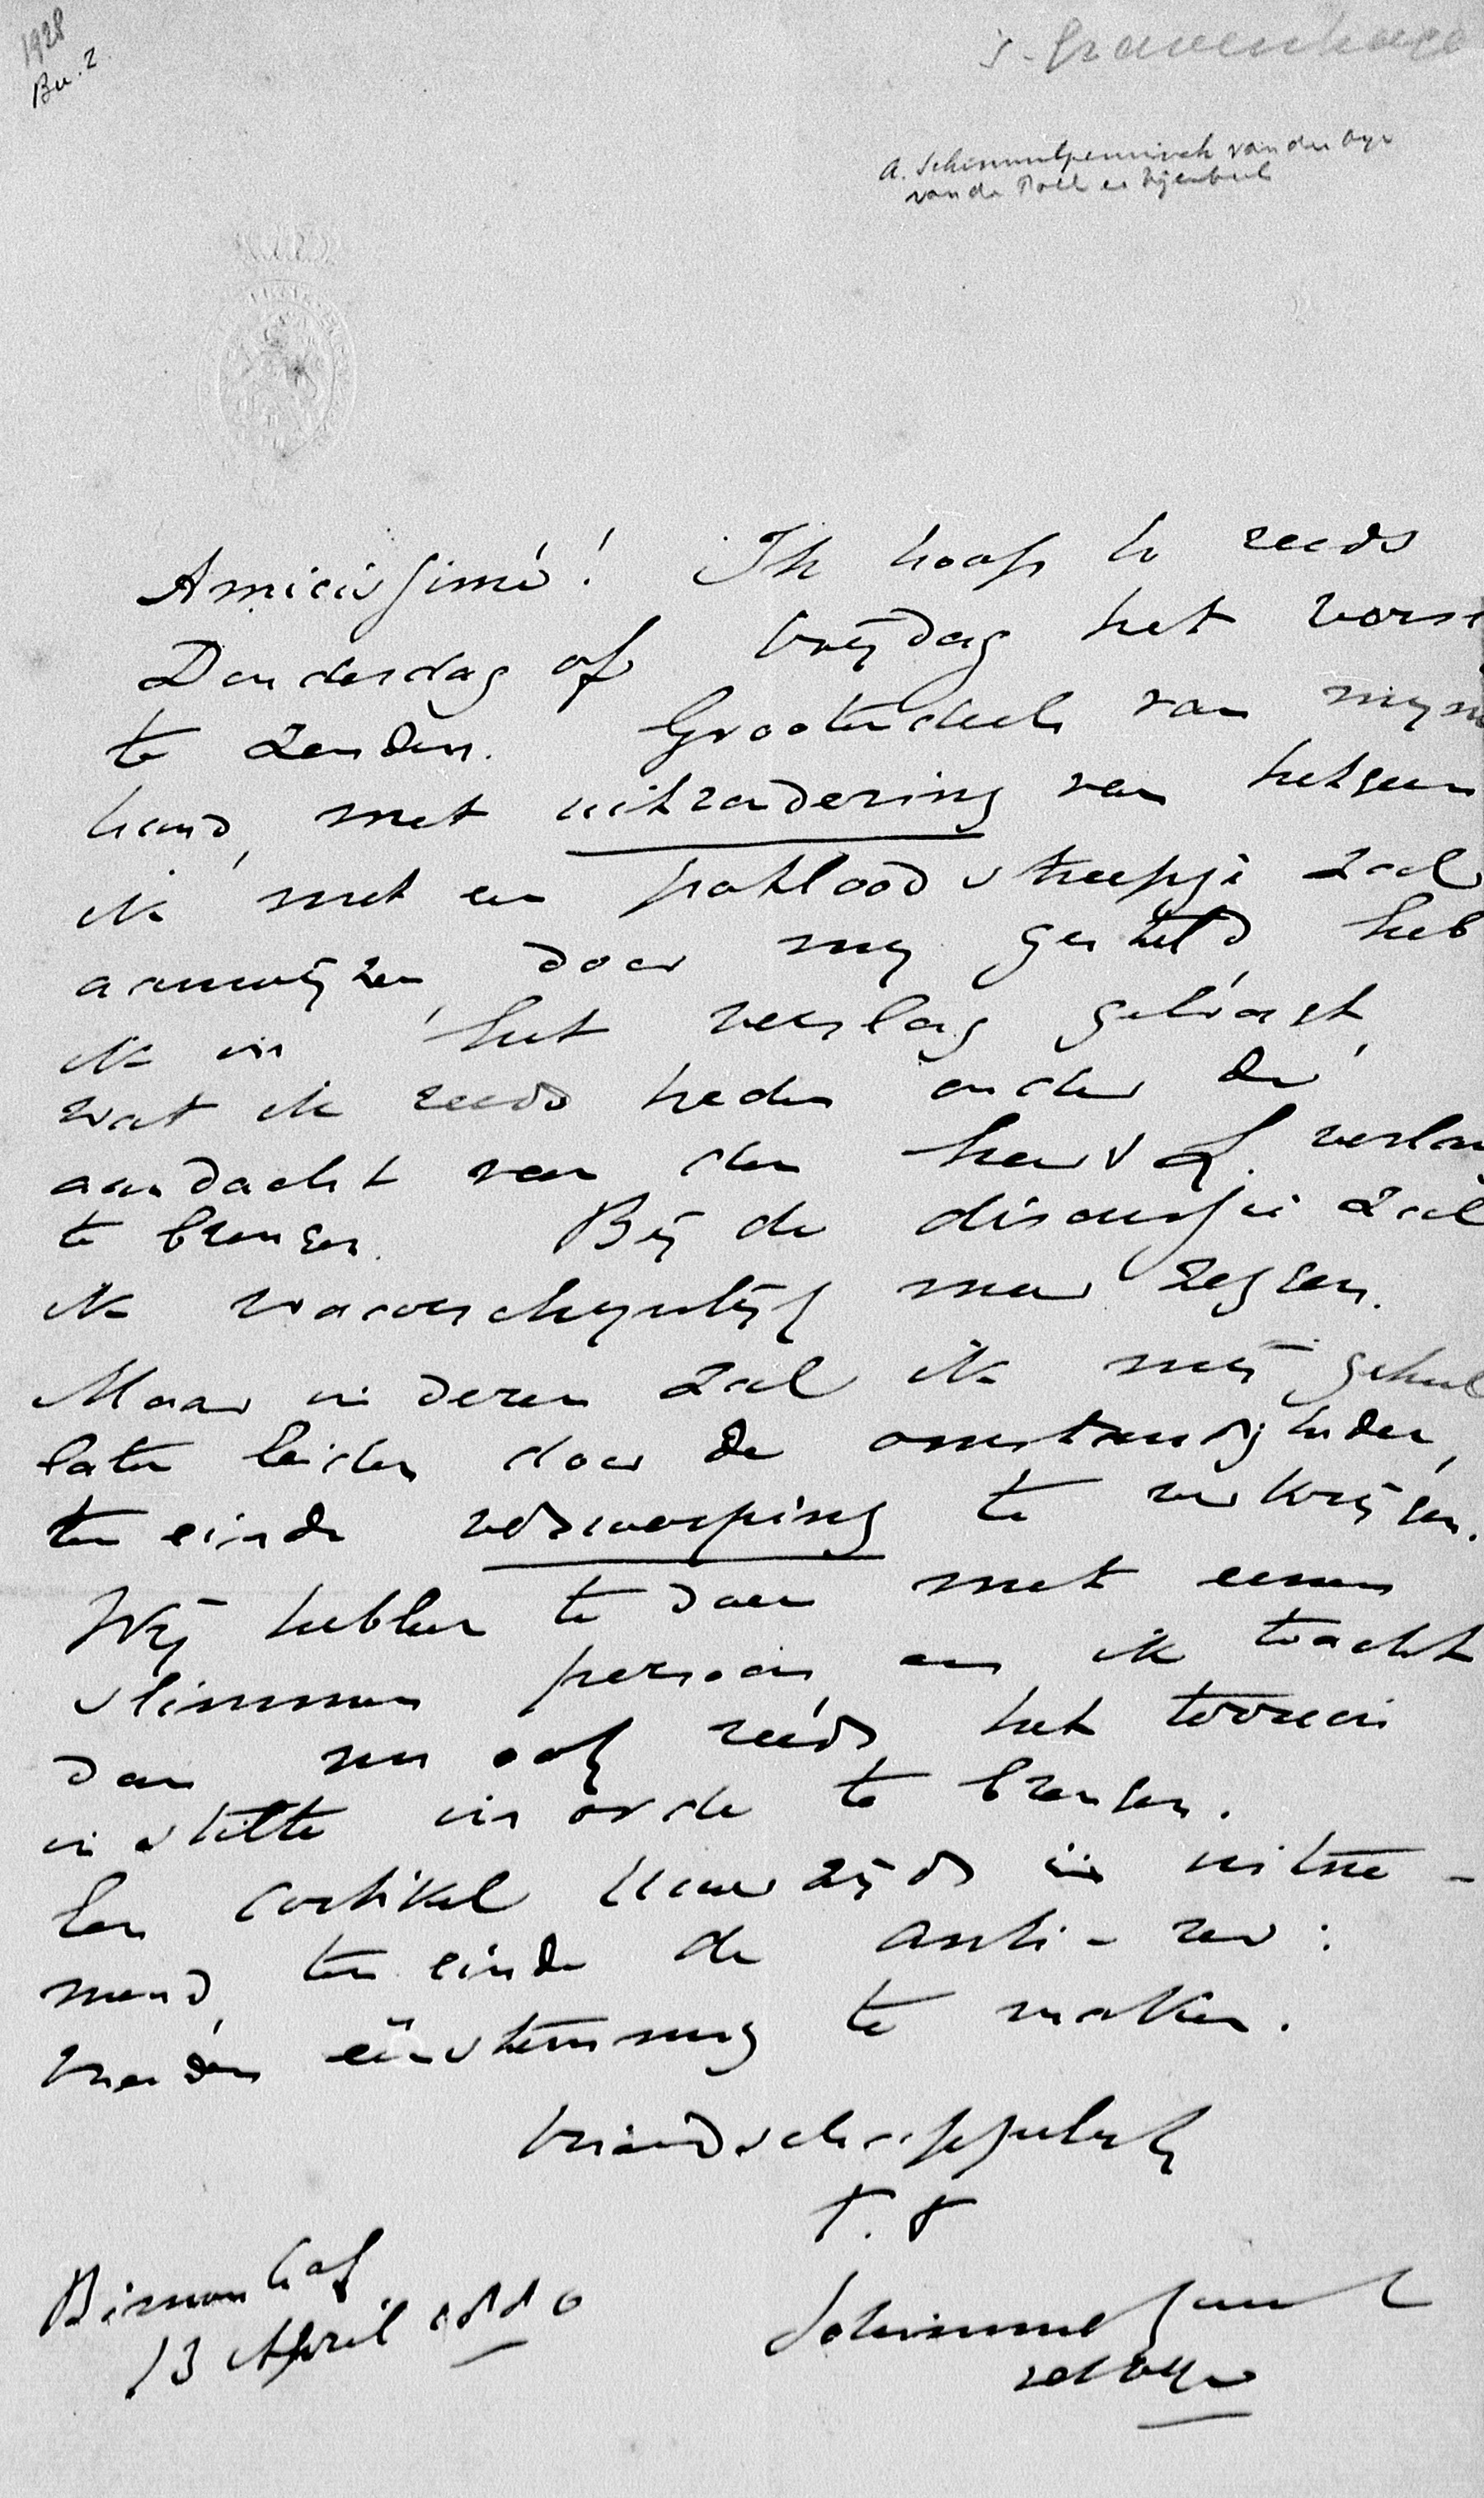 1928
Bu. 2.
's-Gravenhage
A. Schimmelpenninck van der Oye
van de Poll en Nijenbeek
Amicissime! Ik hoop U reeds
Donderdag of Vrijdag het
te zenden. Grootendeels van
hand, met uitzondering van hetgeen
ik met een potlood streepje zal
aanwijzen, door mij gesteld heb
ik in het verslag gebragt,
wat ik reeds heden onder de
aandacht van den heer v L.
te brengen. Bij de discussie zal
ik waarschijnlijk meer zeggen.
Maar in dezen zal ik mij geheel
laten leiden door de omstandigheden,
ten einde verwerping te verkrijgen.
Wij hebben te doen met eenen
slimmen persoon en ik tracht
dan nu ook reeds het terrein
in stilte in orde te brengen.
Een artikel Uwerzijds is uitne-
mend, ten einde de anti-rev:
vrienden eenstemmig te maken.
Vriendschappelijk
T. T
Binnenhof
13 April 1880
Schimmelpenninck
vd Oye